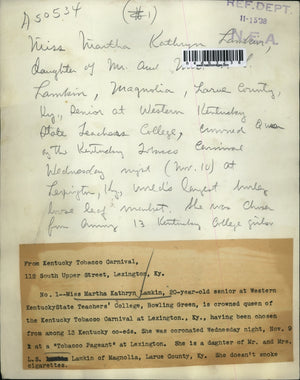 A50534
(#1)
REF. DEPT.
11-15-38
N.E.A.
Miss Martha Kathryn Lamkin,
daughter of Mr. and Mrs.
Lamkin, Magnolia, Larue County,
Ky., senior at Western Kentucky
State Teachers College, crowned Queen
of the Kentucky Tobacco Carnival
Wednesday night (Nov. 10) at
Lexington, Ky., world's largest burley
loose leaf market. She was chosen
from among 13 Kentucky college girls
From Kentucky Tobacco Carnival,
112 South Upper Street, Lexington, Ky.
No. 1--Miss Martha Kathryn Lamkin, 20-year-old senior at Western
KentuckyState Teachers' College, Bowling Green, is crowned queen of
the Kentucky Tobacco Carnival at Lexington., Ky., having been chosen
from among 13 Kentucky co-eds. She was coronated Wednesday night, Nov. 9
at a "Tobacco Pageant" at Lexington. She is a daughter of Mr. and Mrs.
L.S. Lamkin of Magnolia, Larue County, Ky. She doesn't smoke
cigarettes.